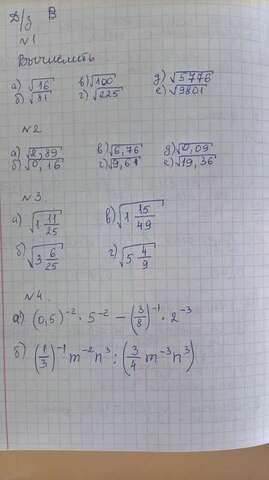 Д/з В
№1
Вычислить
а) √16 в) √100 д) √5776
б) √81 г) √225 е) √9801
№2
а) √2,89 в) √6,76 д) √0,09
б) √0,16 г) √9,61 е) √19,36
№3
а) √1 11/25 в) √1 15/49
б) √3 6/25 г) √5 4/9
№4
а) (0,5)⁻² · 5⁻² − (3/8)⁻¹ · 2⁻³
б) (1/3)⁻¹ m⁻² n³ : (3/4 m⁻³ n³)